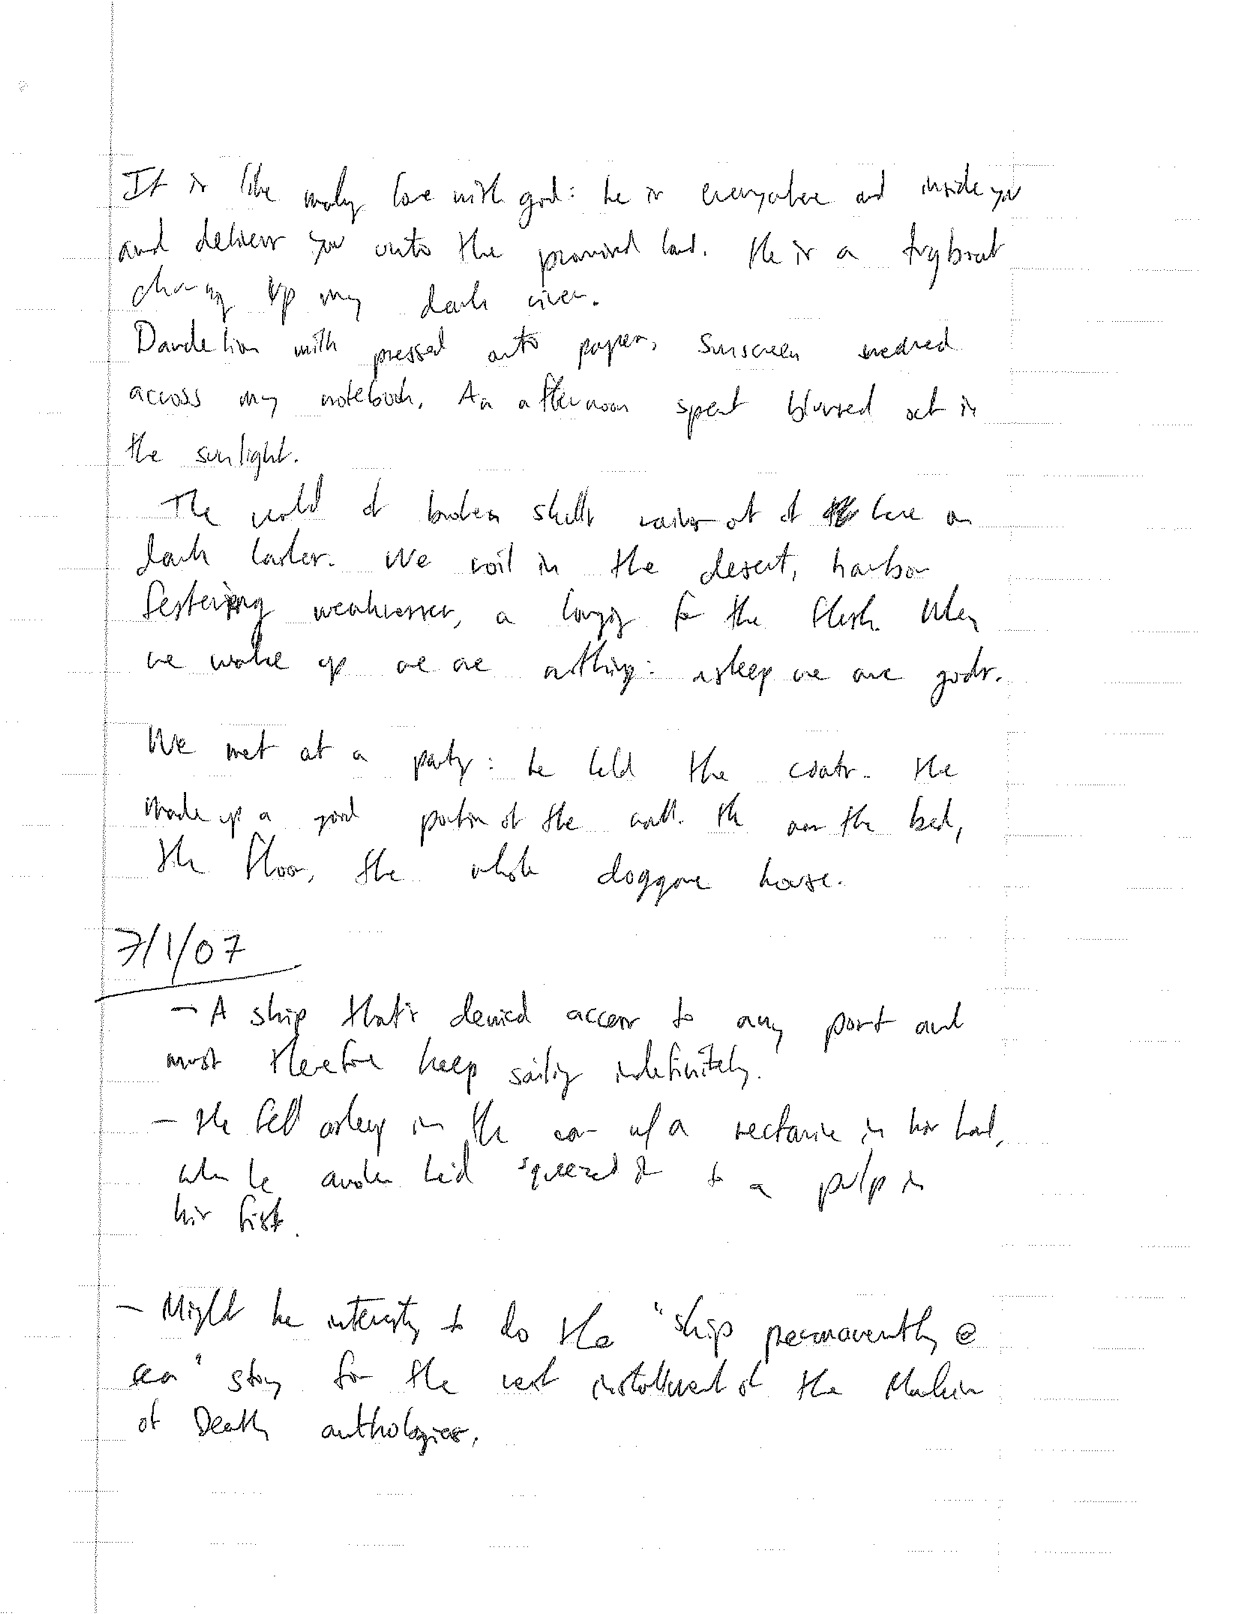 It is like making love with god: he is everywhere and inside you
and delivers you unto the promised land. He is a tugboat
chugging up my dark river.
Dandelion milk pressed onto paper, sunscreen smeared
across my notebook. An afternoon spent blurred out in
the sunlight.
The world of broken skulls out of here on
dark We coil in the desert, harbor
festering weaknesses, a longing for the flesh. When
we wake up we are nothing: asleep we are gods.
We met at a party: he held the coats. He
made up a good portion of the wall. He was the bed,
the floor, the whole doggone house.
7/1/07
- A ship that's denied access to any port and
must therefore keep sailing indefinitely.
- He fell asleep in the car w/ a nectarine in his hand,
when he awoke he'd squeezed it to a pulp in
his fist.
- Might be interesting to do the "ship permanently @
sea" story for the next installment of the Machine
of Death anthologies.